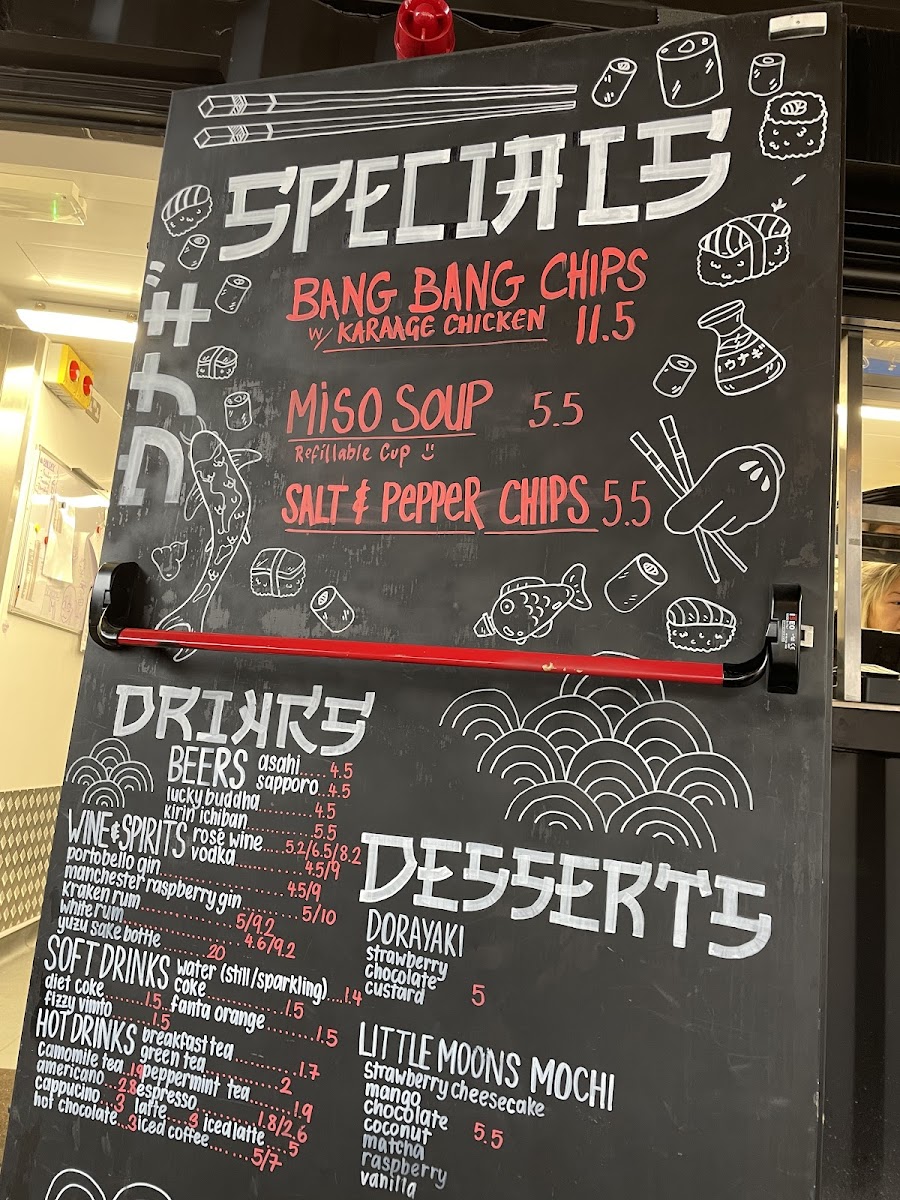 SPECIALS
ウナギ
BANG BANG CHIPS
W/ KARAAGE CHICKEN 11.5
ウナギ
MISO SOUP 5.5
Refillable Cup
SALT & PEPPER CHIPS 5.5
DRINKS
BEERS
asahi.....4.5
sapporo..4.5
lucky buddha..........4.5
kirin ichiban............5.5
WINE & SPIRITS
rosé wine.....5.2/6.5/8.2
vodka..............4.5/9
portobello gin.......................4.5/9
manchester raspberry gin..........5/10
kraken rum................5/9.2
white rum....................4.6/9.2
yuzu sake bottle........20
SOFT DRINKS
water (still/sparkling)...1.4
coke...............1.5
diet coke........1.5
fanta orange..........1.5
fizzy vimto.......1.5
HOT DRINKS
breakfast tea...........1.7
green tea.............2
camomile tea 1.9
peppermint tea.......1.9
americano...2.8
espresso..........1.8/2.6
cappucino...3
latte....3
iced latte....5
hot chocolate...3
iced coffee.......5/7
DESSERTS
DORAYAKI
strawberry
chocolate
custard 5
LITTLE MOONS MOCHI
strawberry cheesecake
mango
chocolate
coconut 5.5
matcha
raspberry
vanilla